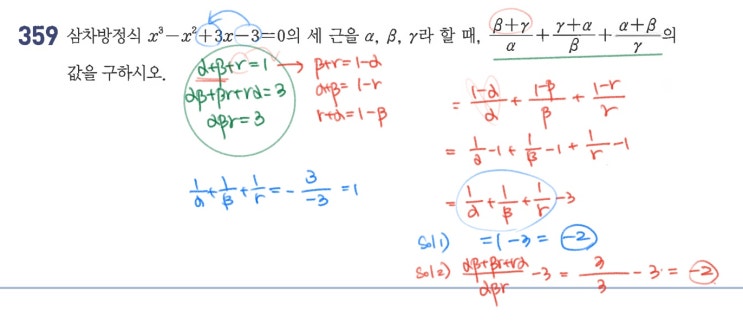 359 삼차방정식 x³-x²+3x-3=0의 세 근을 α, β, γ라 할 때, (β+γ)/α + (γ+α)/β + (α+β)/γ 의
값을 구하시오.
α+β+r=1 → β+r=1-α
αβ+βr+rα=3 α+β=1-r
αβr=3 r+α=1-β
1/α + 1/β + 1/r = - 3/-3 = 1
= (1-α)/α + (1-β)/β + (1-r)/r
= 1/α -1 + 1/β -1 + 1/r -1
= 1/α + 1/β + 1/r -3
Sol 1) = 1-3 = -2
Sol 2) (αβ+βr+rα)/αβr -3 = 3/3 -3 = -2